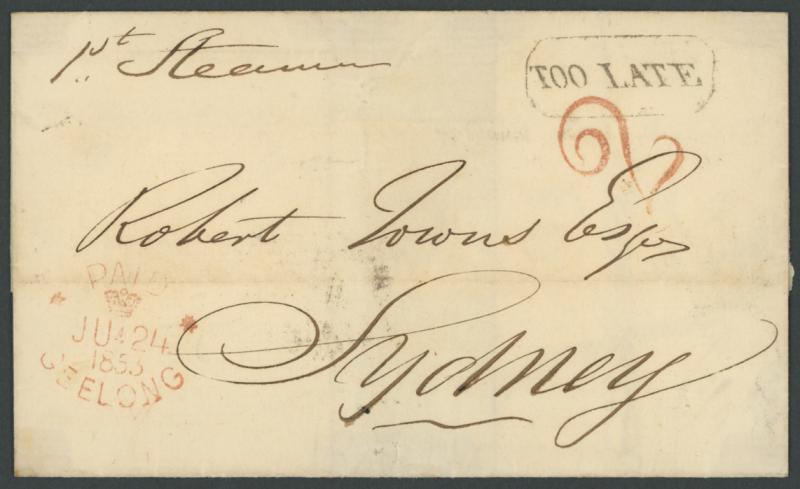 1st Steamer
TOO LATE
2
Robert Towns Esqr
PAID
JU 24
1853
GEELONG
Sydney